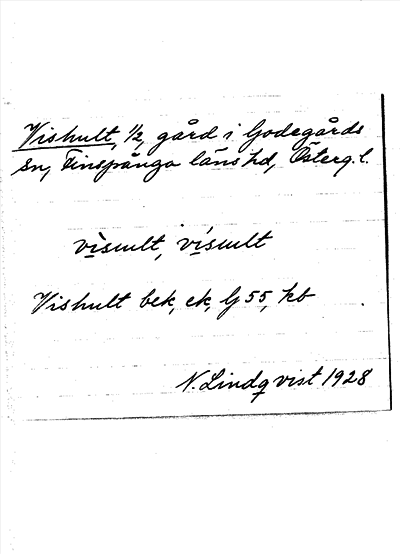 Vishult, 1/2, gård i Godegårds
sn, Finspånga läns hd, Österg. l.
vìsult, vísult
Vishult bek, ek, Gj 55, kb
N. Lindqvist 1928